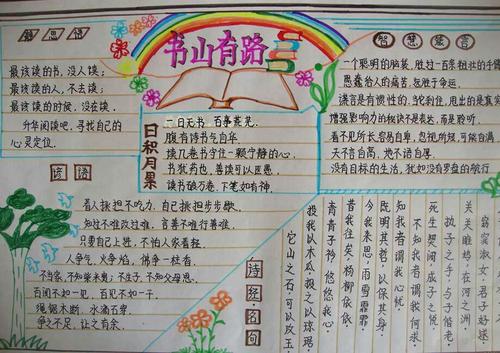 书山有路
最该读的书，没人读；
最该读的人，不去读；
最该读的时候，没在读。
升华阅读吧，寻找自己的
心灵定位。
谚语
看人挑担不吃力，自己挑担步步歇。
知过不难改过难，言善不难行善难。
只要自己上进，不怕人家看轻。
人争气，火争焰，佛争一柱香。
不当家，不知柴米贵；不生子，不知父母恩。
百闻不如一见，百见不如一干。
绳锯木断，水滴石穿。
争之不足，让之有余。
日积月累
一日无书 百事荒芜。
腹有诗书气自华
读几卷书 守住一颗宁静的心。
书犹药也，善读可以医愚。
读书破万卷 下笔如有神。
智慧箴言
一个聪明的脑袋，胜过一百条粗壮的手
愚蠢给人的痛苦，甚于命运。
谎言是有惯性的，
增强影响力的秘诀不是表达，而是聆听。
看不见所长，容易自卑，忽视所短，可能自满
天不言自高，地不语自厚。
没有目标的生活，犹如没有罗盘的航行
诗经·名句
窈窕淑女，君子好逑
关关雎鸠，在河之洲。
执子之手，与子偕老。
死生契阔，与子成说。
不知我者，谓我何求
知我者，谓我心忧
既明且哲，以保其身
今我来思，雨雪霏霏
昔我往矣，杨柳依依
青青子衿，悠悠我心
投我以木瓜，报之以琼琚
它山之石，可以攻玉